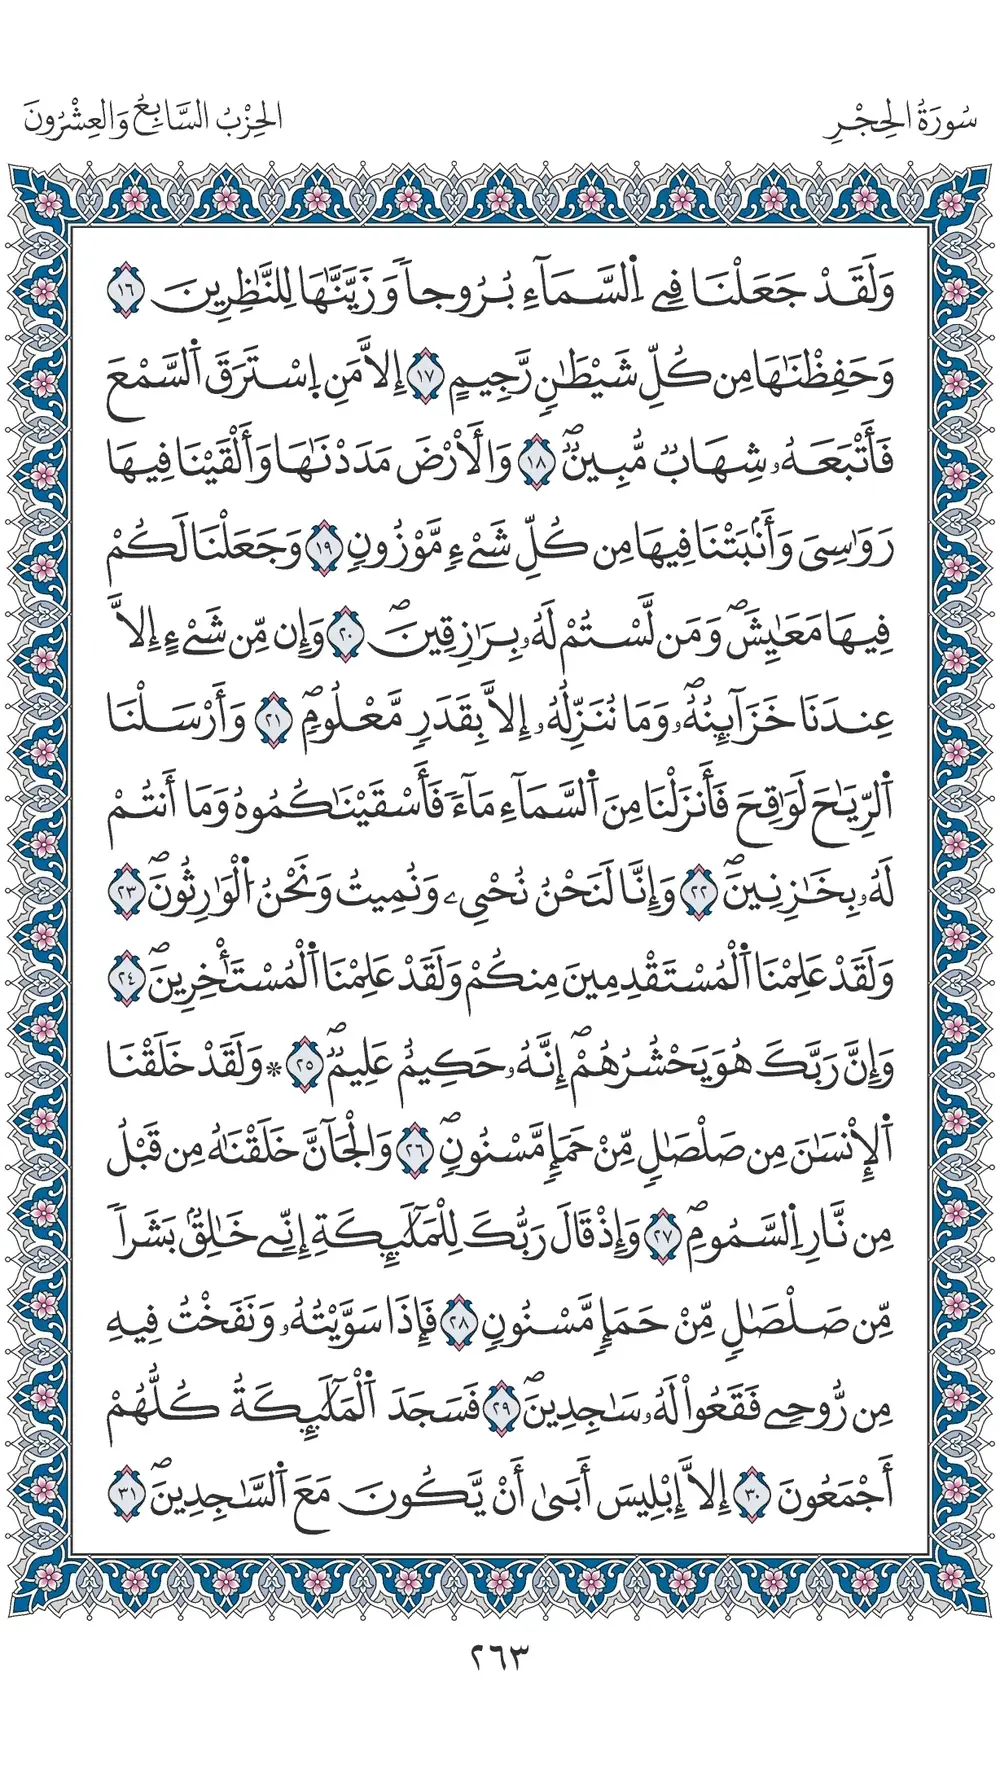 سُورَةُ الحِجْرِ
الحِزْبُ السَّابِعُ وَالعِشْرُونَ
وَلَقَدْ جَعَلْنَا فِے اِ۬لسَّمَآءِ بُرُوجاٗ وَزَيَّنَّٰهَا لِلنَّٰظِرِينَ ١٦
وَحَفِظْنَٰهَا مِن كُلِّ شَيْطَٰنٖ رَّجِيمٍ ١٧ اِلَّا مَنِ اِ۪سْتَرَقَ اَ۬لسَّمْعَ
فَأَتْبَعَهُۥ شِهَابٞ مُّبِينٞۖ ١٨ وَالَارْضَ مَدَدْنَٰهَا وَأَلْقَيْنَا فِيهَا
رَوَٰسِيَ وَأَنۢبَتْنَا فِيهَا مِن كُلِّ شَےْءٖ مَّوْزُونٖ ١٩ وَجَعَلْنَا لَكُمْ
فِيهَا مَعَٰيِشَۖ وَمَن لَّسْتُمْ لَهُۥ بِرَٰزِقِينَۖ ٢٠ وَإِن مِّن شَےْءٍ اِلَّا
عِندَنَا خَزَآئِنُهُۥۖ وَمَا نُنَزِّلُهُۥٓ إِلَّا بِقَدَرٖ مَّعْلُومٖۖ ٢١ وَأَرْسَلْنَا
اَ۬لرِّيَٰحَ لَوَٰقِحَ فَأَنزَلْنَا مِنَ اَ۬لسَّمَآءِ مَآءٗ فَأَسْقَيْنَٰكُمُوهُ وَمَا أَنتُمْ
لَهُۥ بِخَٰزِنِينَۖ ٢٢ وَإِنَّا لَنَحْنُ نُحْيِۦ وَنُمِيتُ وَنَحْنُ اُ۬لْوَٰرِثُونَۖ ٢٣
وَلَقَدْ عَلِمْنَا اَ۬لْمُسْتَقْدِمِينَ مِنكُمْ وَلَقَدْ عَلِمْنَا اَ۬لْمُسْتَـٔۡخِرِينَۖ ٢٤
وَإِنَّ رَبَّكَ هُوَ يَحْشُرُهُمْۖ إِنَّهُۥ حَكِيمٌ عَلِيمٞۖ ٢٥ ۞ وَلَقَدْ خَلَقْنَا
اَ۬لْإِنسَٰنَ مِن صَلْصَٰلٖ مِّنْ حَمَإٖ مَّسْنُونٖۖ ٢٦ وَالْجَآنَّ خَلَقْنَٰهُ مِن قَبْلُ
مِن نَّارِ اِ۬لسَّمُومِۖ ٢٧ وَإِذْ قَالَ رَبُّكَ لِلْمَلَٰٓئِكَةِ إِنِّے خَٰلِقُۢ بَشَراٗ
مِّن صَلْصَٰلٖ مِّنْ حَمَإٖ مَّسْنُونٖ ٢٨ فَإِذَا سَوَّيْتُهُۥ وَنَفَخْتُ فِيهِ
مِن رُّوحِے فَقَعُواْ لَهُۥ سَٰجِدِينَۖ ٢٩ فَسَجَدَ اَ۬لْمَلَٰٓئِكَةُ كُلُّهُمُۥٓ
أَجْمَعُونَ ٣٠ إِلَّا إِبْلِيسَ أَبَىٰ أَنْ يَّكُونَ مَعَ اَ۬لسَّٰجِدِينَۖ ٣١
٢٦٣